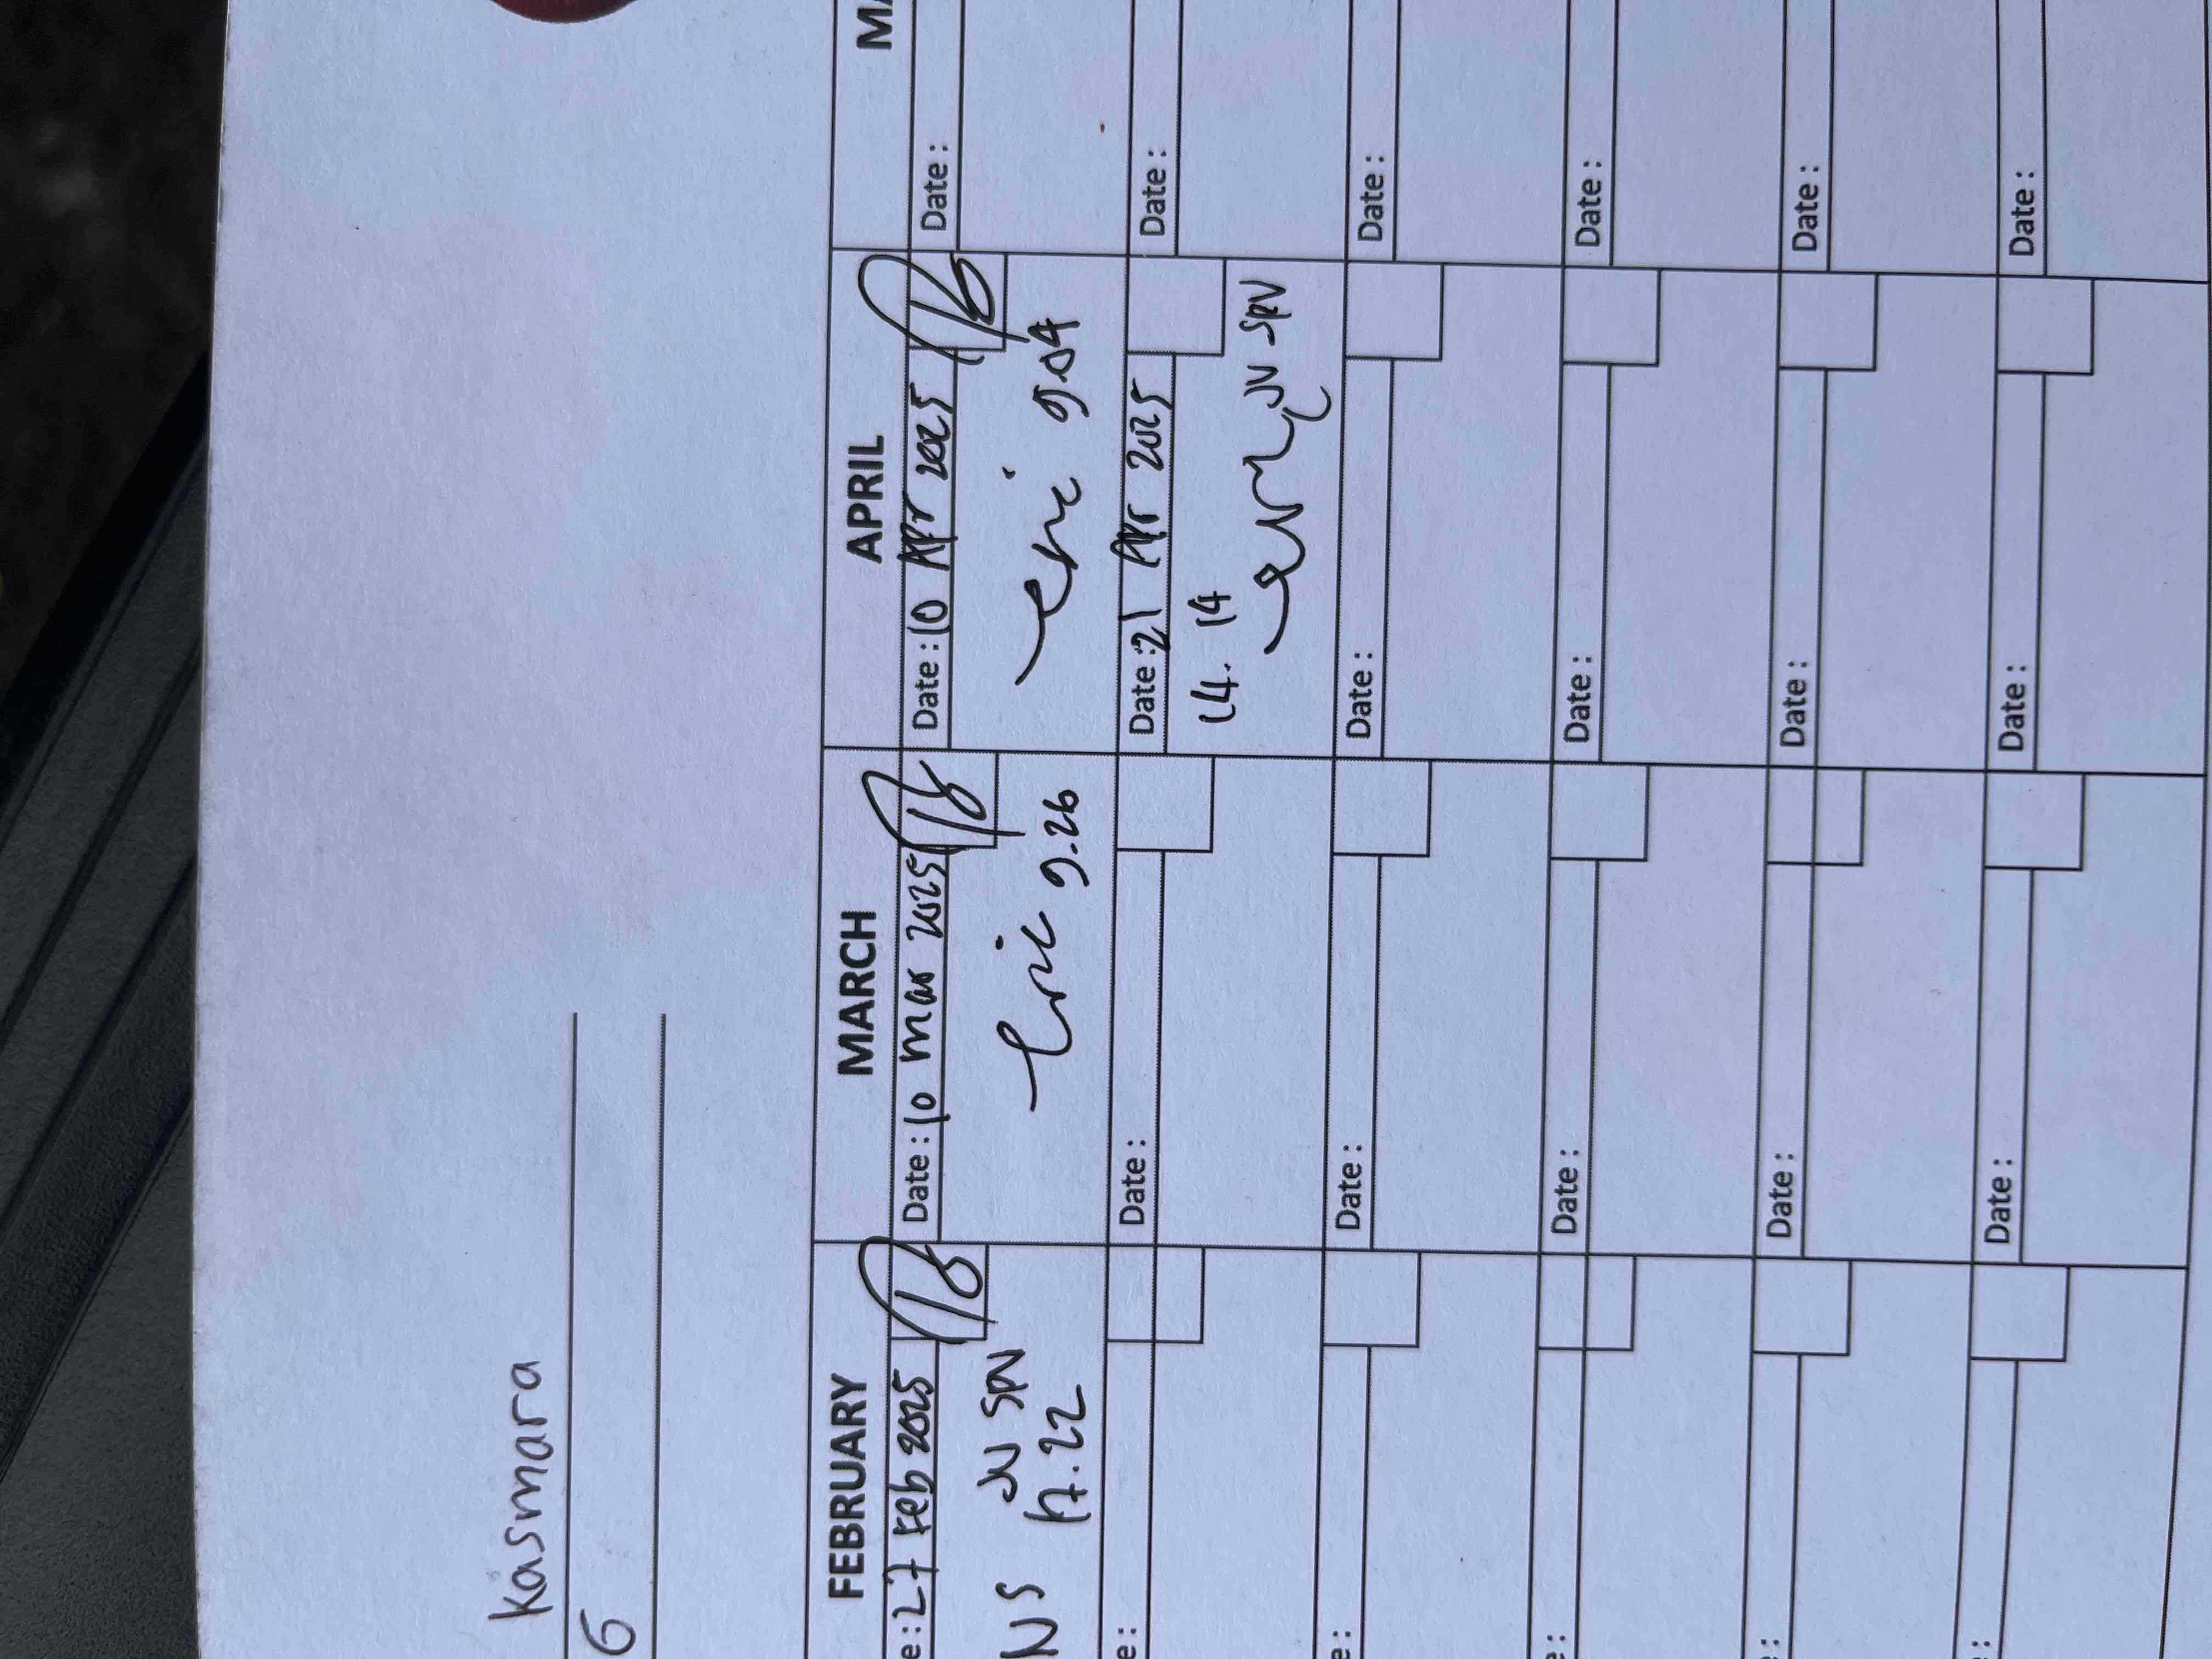 kasmara
6
FEBRUARY MARCH APRIL
e: 27 Feb 2025 Date: 10 mar 2025 Date: 10 Apr 2025 Date:
NS JV SPV Eric 9.26 eric 9.04
17.22
e: Date: Date: 21 Apr 2025 Date:
14.14
JV SPV
e: Date: Date: Date:
e: Date: Date: Date:
e: Date: Date: Date:
e: Date: Date: Date: